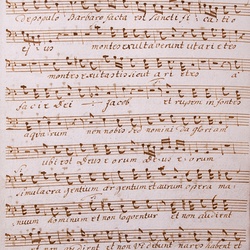 de populo Barbaro facta est sancti fi catio
e jus montes exultaverunt ut arietes
montes exultastis sicut arietes a
facie Dei Jacob et rupem in fontes
aquarum non nobis Do nomini da gloriam
ubi est Deus eorum Deus eorum
simulacra gentium argentum et aurum opera ma
nuum hominum et non loquentur et non audient
non audient et non videbunt nares habent et